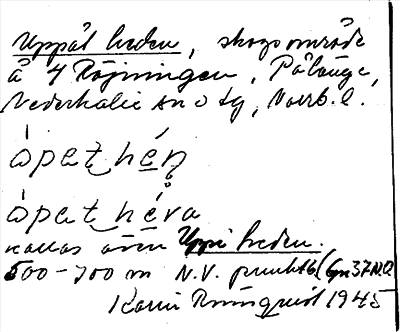 Uppåt heden, skogsområde
å 4 Röjningen, Pålänge,
Nederkalix sn o tg, Norrb. l.
òpet hén
òpet héva
kallas även Uppi heden.
500-700 m N.V. punkt 6 (Gn37NO
Karin Rönnqvist 1945